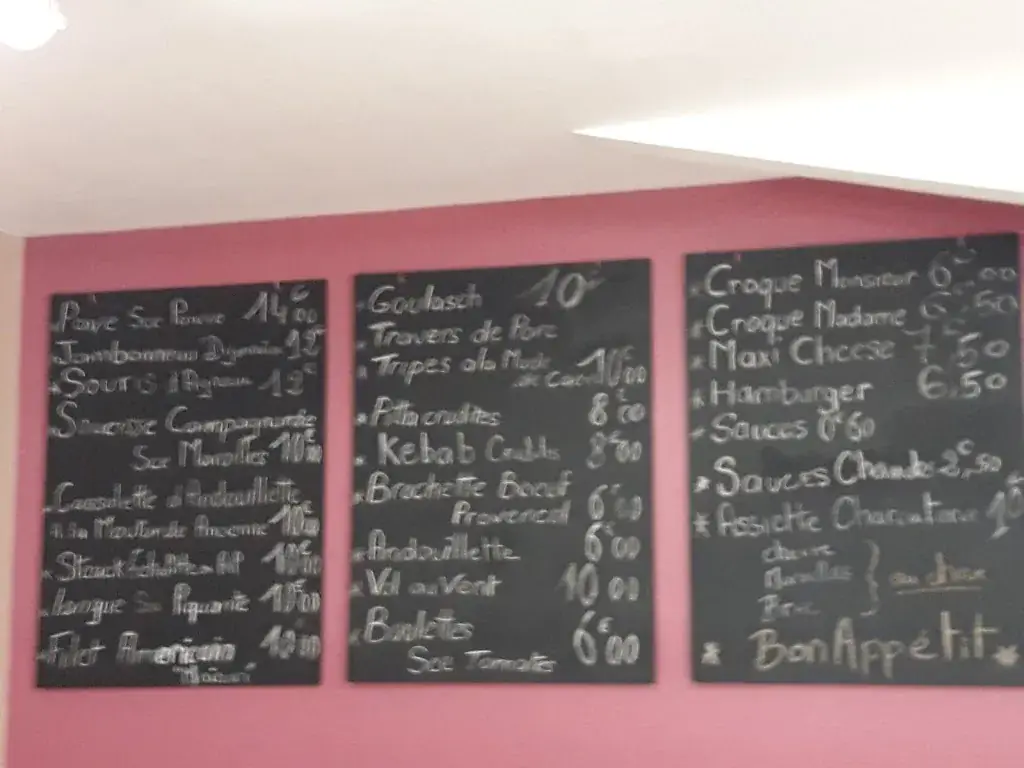 Pavé Sce Poivre 14€00
Jambonneau 12€
Souris d'Agneau 12€
Saucisse Campagnarde
Sce Maroilles 10€00
Cassolette d'Andouillette
à la Moutarde Ancienne 10€00
Steack Echalottes 10€00
Langue Sce Piquante 10€00
Filet Américain
Goulasch 10€
Travers de Porc
Tripes à la Mode
de Caen 10€00
Pitta crudités 8€00
Kebab Crudités 8€00
Brochette Boeuf
Provencal 6€00
Andouillette 6€00
Vol au Vent 10 00
Boulettes
Sce Tomates 6€00
Croque Monsieur 6€00
Croque Madame 6€50
Maxi Cheese 7€50
Hamburger 6.50
Sauces 0€60
Sauces Chaudes 2€,50
Assiette Charcuterie
chèvre
Maroilles } au choix
Brie
Bon Appétit